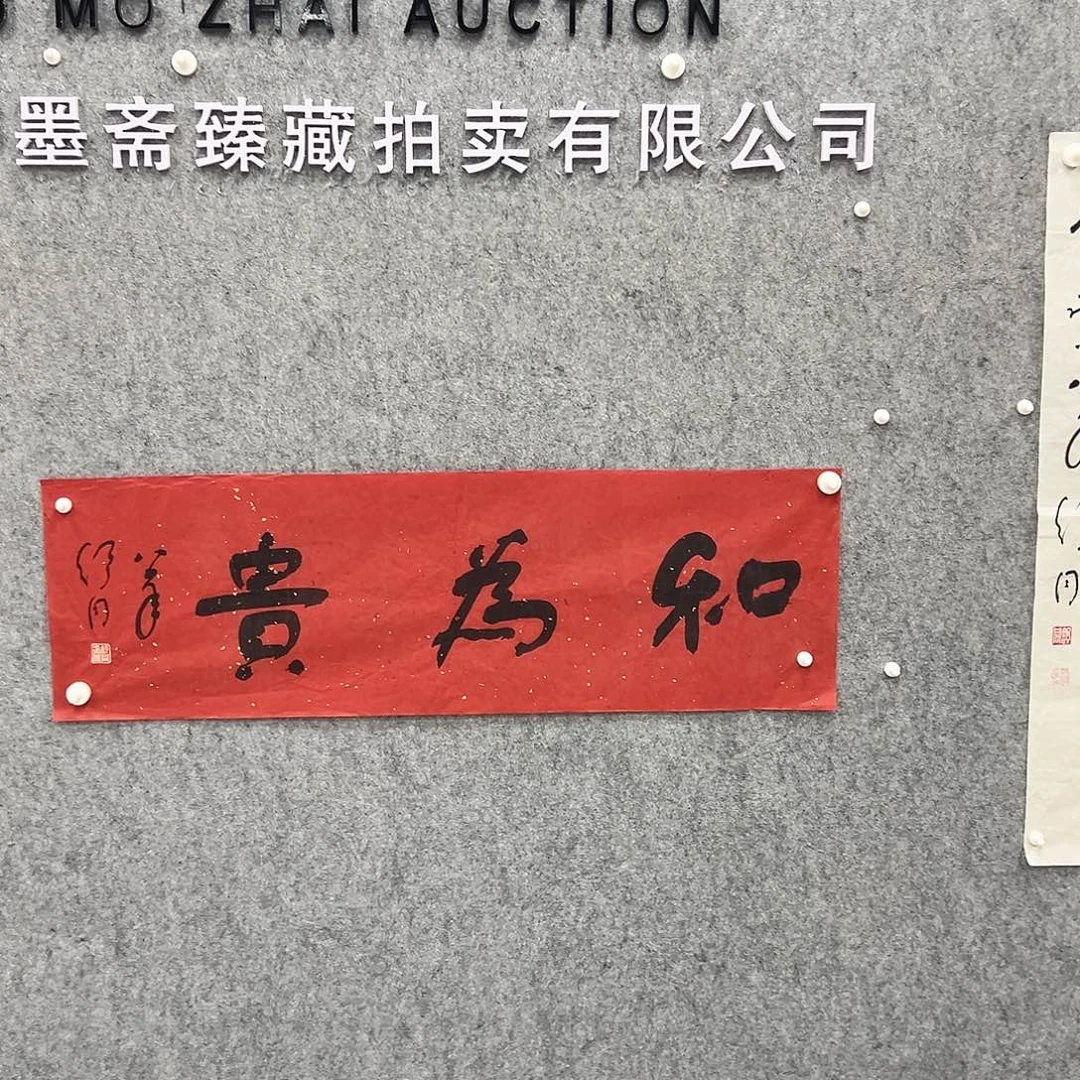 MO ZHAI AUCTION
墨斋臻藏拍卖有限公司
和為貴
舒同
舒同